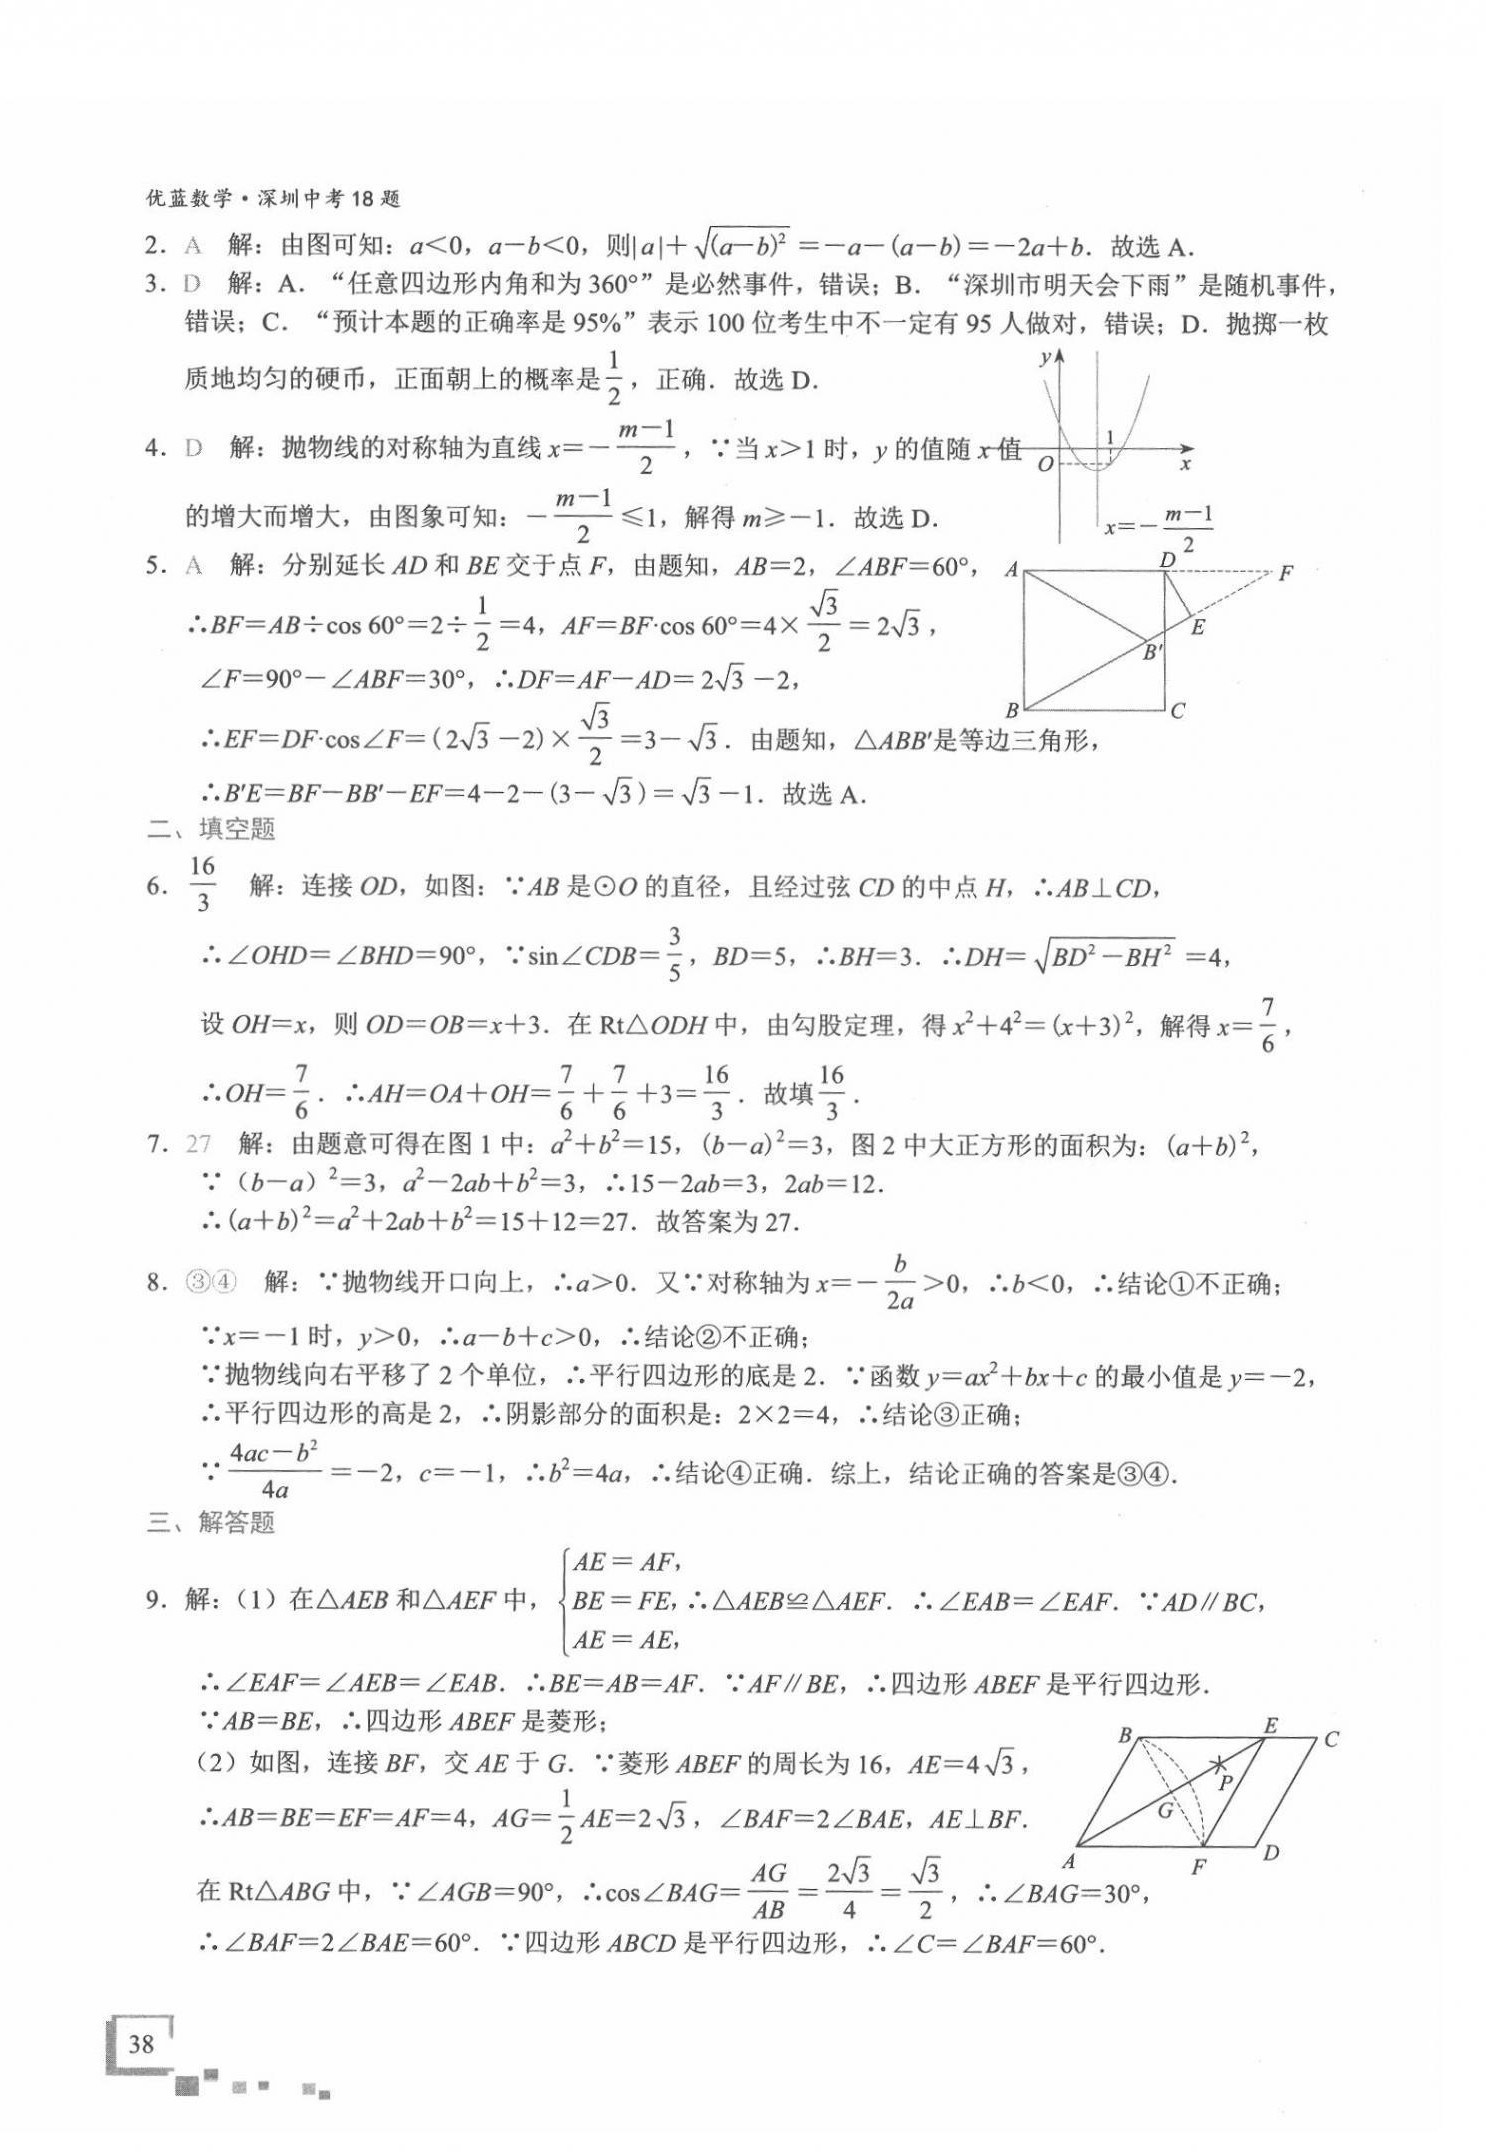 优蓝数学·深圳中考18题
2. A 解：由图可知：a<0，a－b<0，则|a|＋√(a－b)² ＝－a－(a－b)＝－2a＋b．故选 A．
3. D 解：A．“任意四边形内角和为 360°”是必然事件，错误；B．“深圳市明天会下雨”是随机事件，
错误；C．“预计本题的正确率是 95%”表示 100 位考生中不一定有 95 人做对，错误；D．抛掷一枚
质地均匀的硬币，正面朝上的概率是1/2，正确．故选 D．
4. D 解：抛物线的对称轴为直线 x＝－(m－1)/2，∵当 x>1 时，y 的值随 x 值
的增大而增大，由图象可知：－(m－1)/2≤1，解得 m≥－1．故选 D．
y
1
O
x
x＝－(m－1)/2
5. A 解：分别延长 AD 和 BE 交于点 F，由题知，AB＝2，∠ABF＝60°，
∴BF＝AB÷cos 60°＝2÷1/2＝4，AF＝BF·cos 60°＝4×√3/2＝2√3，
∠F＝90°－∠ABF＝30°，∴DF＝AF－AD＝2√3－2，
∴EF＝DF·cos∠F＝(2√3－2)×√3/2＝3－√3．由题知，△ABB′是等边三角形，
∴B′E＝BF－BB′－EF＝4－2－(3－√3)＝√3－1．故选 A．
A
D
F
E
B′
B
C
二、填空题
6. 16/3 解：连接 OD，如图：∵AB 是⊙O 的直径，且经过弦 CD 的中点 H，∴AB⊥CD，
∴∠OHD＝∠BHD＝90°，∵sin∠CDB＝3/5，BD＝5，∴BH＝3．∴DH＝√(BD²－BH²)＝4，
设 OH＝x，则 OD＝OB＝x＋3．在 Rt△ODH 中，由勾股定理，得 x²＋4²＝(x＋3)²，解得 x＝7/6，
∴OH＝7/6．∴AH＝OA＋OH＝7/6＋7/6＋3＝16/3．故填16/3．
7. 27 解：由题意可得在图 1 中：a²＋b²＝15，(b－a)²＝3，图 2 中大正方形的面积为：(a＋b)²，
∵（b－a）²＝3，a²－2ab＋b²＝3，∴15－2ab＝3，2ab＝12．
∴(a＋b)²＝a²＋2ab＋b²＝15＋12＝27．故答案为 27．
8. ③④ 解：∵抛物线开口向上，∴a>0．又∵对称轴为 x＝－b/2a>0，∴b<0，∴结论①不正确；
∵x＝－1 时，y>0，∴a－b＋c>0，∴结论②不正确；
∵抛物线向右平移了 2 个单位，∴平行四边形的底是 2．∵函数 y＝ax²＋bx＋c 的最小值是 y＝－2，
∴平行四边形的高是 2，∴阴影部分的面积是：2×2＝4，∴结论③正确；
∵(4ac－b²)/4a＝－2，c＝－1，∴b²＝4a，∴结论④正确．综上，结论正确的答案是③④．
三、解答题
9. 解：（1）在△AEB 和△AEF 中，{AE＝AF，BE＝FE，AE＝AE，∴△AEB≌△AEF．∴∠EAB＝∠EAF．∵AD∥BC，
∴∠EAF＝∠AEB＝∠EAB．∴BE＝AB＝AF．∵AF∥BE，∴四边形 ABEF 是平行四边形．
∵AB＝BE，∴四边形 ABEF 是菱形；
（2）如图，连接 BF，交 AE 于 G．∵菱形 ABEF 的周长为 16，AE＝4√3，
∴AB＝BE＝EF＝AF＝4，AG＝1/2 AE＝2√3，∠BAF＝2∠BAE，AE⊥BF．
在 Rt△ABG 中，∵∠AGB＝90°，∴cos∠BAG＝AG/AB＝2√3/4＝√3/2，∴∠BAG＝30°，
∴∠BAF＝2∠BAE＝60°．∵四边形 ABCD 是平行四边形，∴∠C＝∠BAF＝60°．
B
E
C
P
G
A
F
D
38